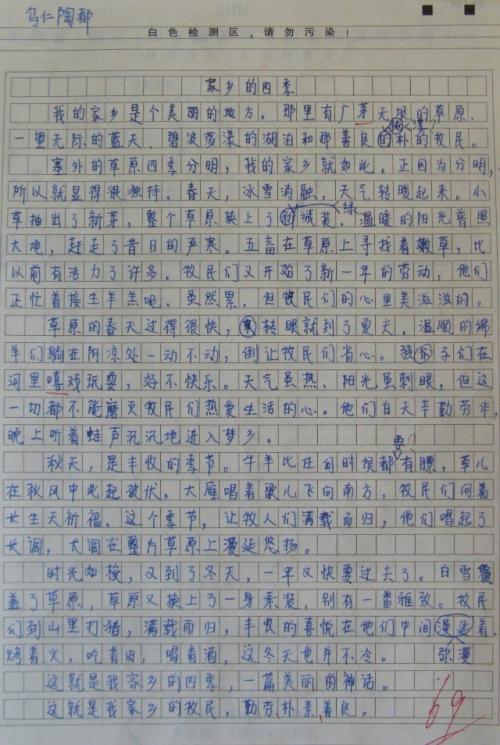 乌仁陶都
白色检测区，请勿污染！
家乡的四季
我的家乡是个美丽的地方。那里有广茅无垠的草原、
一望无际的蓝天、碧波荡漾的湖泊和那善良的朴的牧民。
塞外的草原四季分明，我的家乡就如此。正因为分明，
所以就显得很独特。春天，冰雪消融，天气转暖起来。小
草抽出了新芽，整个草原换上了绿城装。温暖的阳光普照
大地，赶走了昔日的严寒。五畜在草原上寻找着嫩草，比
以前有活力了许多。牧民们又开始了新一年的劳动，他们
正忙着接生羊羔呢。虽然累，但牧民们的心里美滋滋的。
草原的春天过得很快，转眼就到了夏天。温顺的绵
羊们躺在阴凉处一动不动，倒让牧民们省心。孩子们在
河里嘻戏玩耍，好不快乐。天气虽热，阳光虽刺眼，但这
一切都不能磨灭牧民们热爱生活的心。他们白天辛勤劳作，
晚上听着蛙声沉沉地进入梦乡。
秋天，是丰收的季节。牛羊比任何时候都有膘，草儿
在秋风中此起彼伏。大雁唱着歌儿飞向南方，牧民们向着
长生天祈福。这个季节，让牧人们满载而归，他们唱起了
长调，大调在整片草原上漫延悠扬。
时光如梭，又到了冬天，一年又快要过去了。白雪覆
盖了草原，草原又换上了一身素装，别有一番雅致。牧民
们到山里打猎，满载而归，丰收的喜悦在他们中间漫延着。
烤着火，吃着肉，喝着酒，这冬天也并不冷。
弥漫
这就是我家乡的四季，一篇美丽的神话。
这就是我家乡的牧民，勤劳、朴素、善良。
69